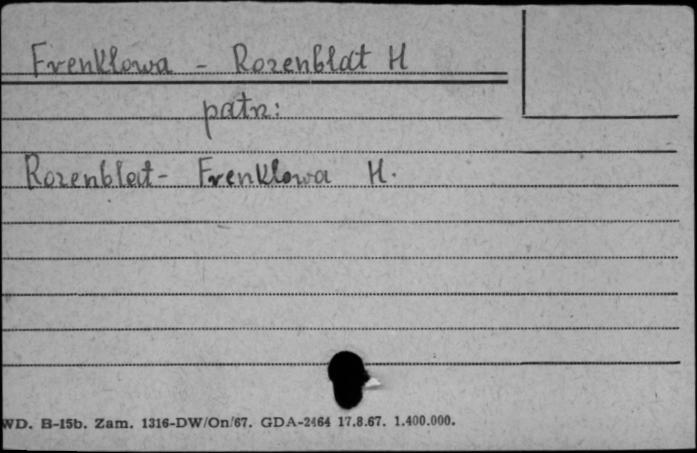 Frenklowa - Rozenblat H
patrz:
Rozenblat- Frenklowa H.
WD. B-15b. Zam. 1316-DW/On/67. GDA-2464 17.8.67. 1.400.000.